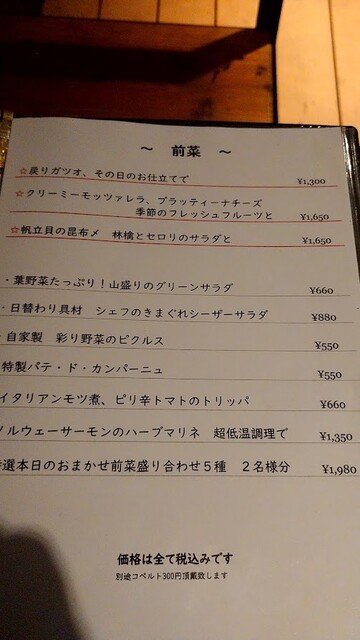 ～ 前菜 ～
☆戻りガツオ、その日のお仕立てで ¥1,300
☆クリーミーモッツァレラ、ブラッティーナチーズ
季節のフレッシュフルーツと ¥1,650
☆帆立貝の昆布〆 林檎とセロリのサラダと ¥1,650
・葉野菜たっぷり！山盛りのグリーンサラダ ¥660
・日替わり具材 シェフのきまぐれシーザーサラダ ¥880
・自家製 彩り野菜のピクルス ¥550
特製パテ・ド・カンパーニュ ¥550
イタリアンモツ煮、ピリ辛トマトのトリッパ ¥660
ノルウェーサーモンのハーブマリネ 超低温調理で ¥1,350
選本日のおまかせ前菜盛り合わせ５種 ２名様分 ¥1,980
価格は全て税込みです
別途コペルト300円頂戴致します